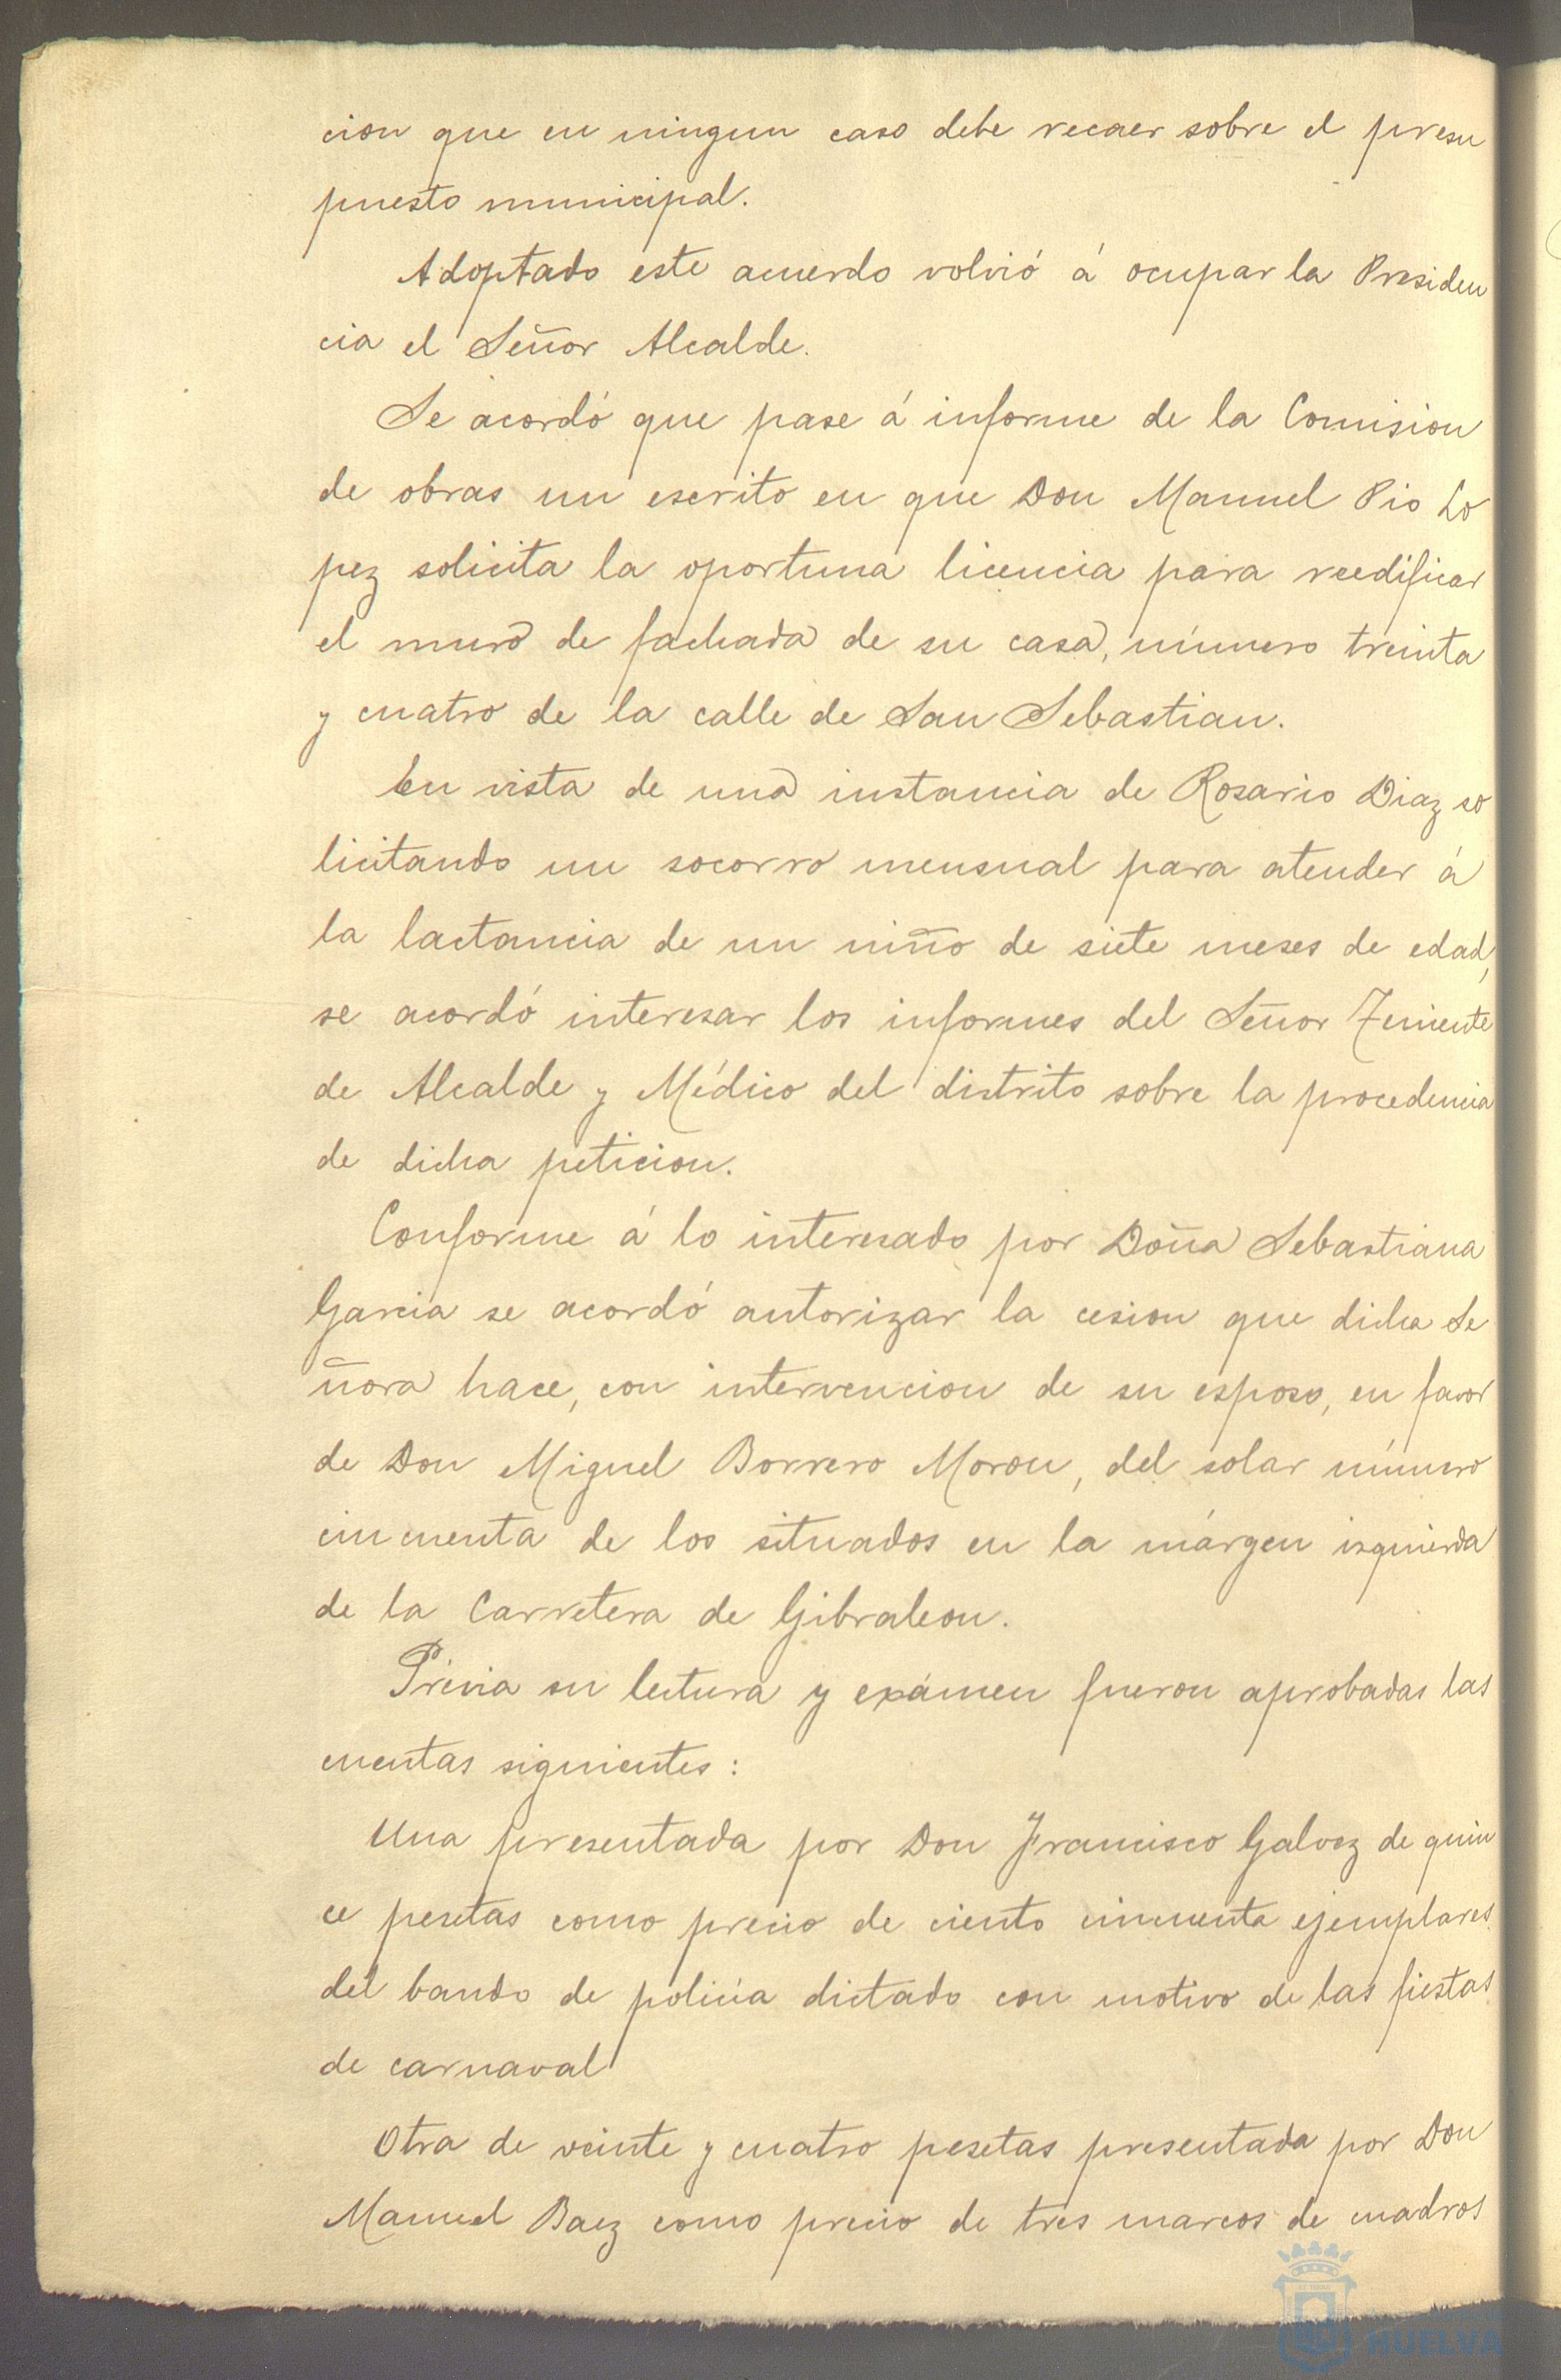 cion que en ningun caso debe recaer sobre el presu
puesto municipal.
Adoptado este acuerdo volvió á ocupar la Presiden
cia el Señor Alcalde.
Se acordó que pase á informe de la Comision
de obras un escrito en que Don Manuel Pio Lo
pez solicita la oportuna licencia para reedificar
el muro de fachada de su casa, número treinta
y cuatro de la calle de San Sebastian.
En vista de una instancia de Rosario Diaz so
licitando un socorro mensual para atender á
la lactancia de un niño de siete meses de edad,
se acordó interesar los informes del Señor Teniente
de Alcalde y Médico del distrito sobre la procedencia
de dicha peticion.
Conforme á lo interesado por Doña Sebastiana
Garcia se acordó autorizar la cesion que dicha Se
ñora hace, con intervencion de su esposo, en favor
de Don Miguel Borrero Moron, del solar número
cincuenta de los situados en la márgen izquierda
de la Carretera de Gibraleon.
Prévia su lectura y exámen fueron aprobadas las
cuentas siguientes:
Una presentada por Don Francisco Galvez de quin
ce pesetas como precio de ciento cincuenta ejemplares
del bando de policía dictado con motivo de las fiestas
de carnaval
Otra de veinte y cuatro pesetas presentada por Don
Manuel Baez como precio de tres marcos de cuadros
HUELVA